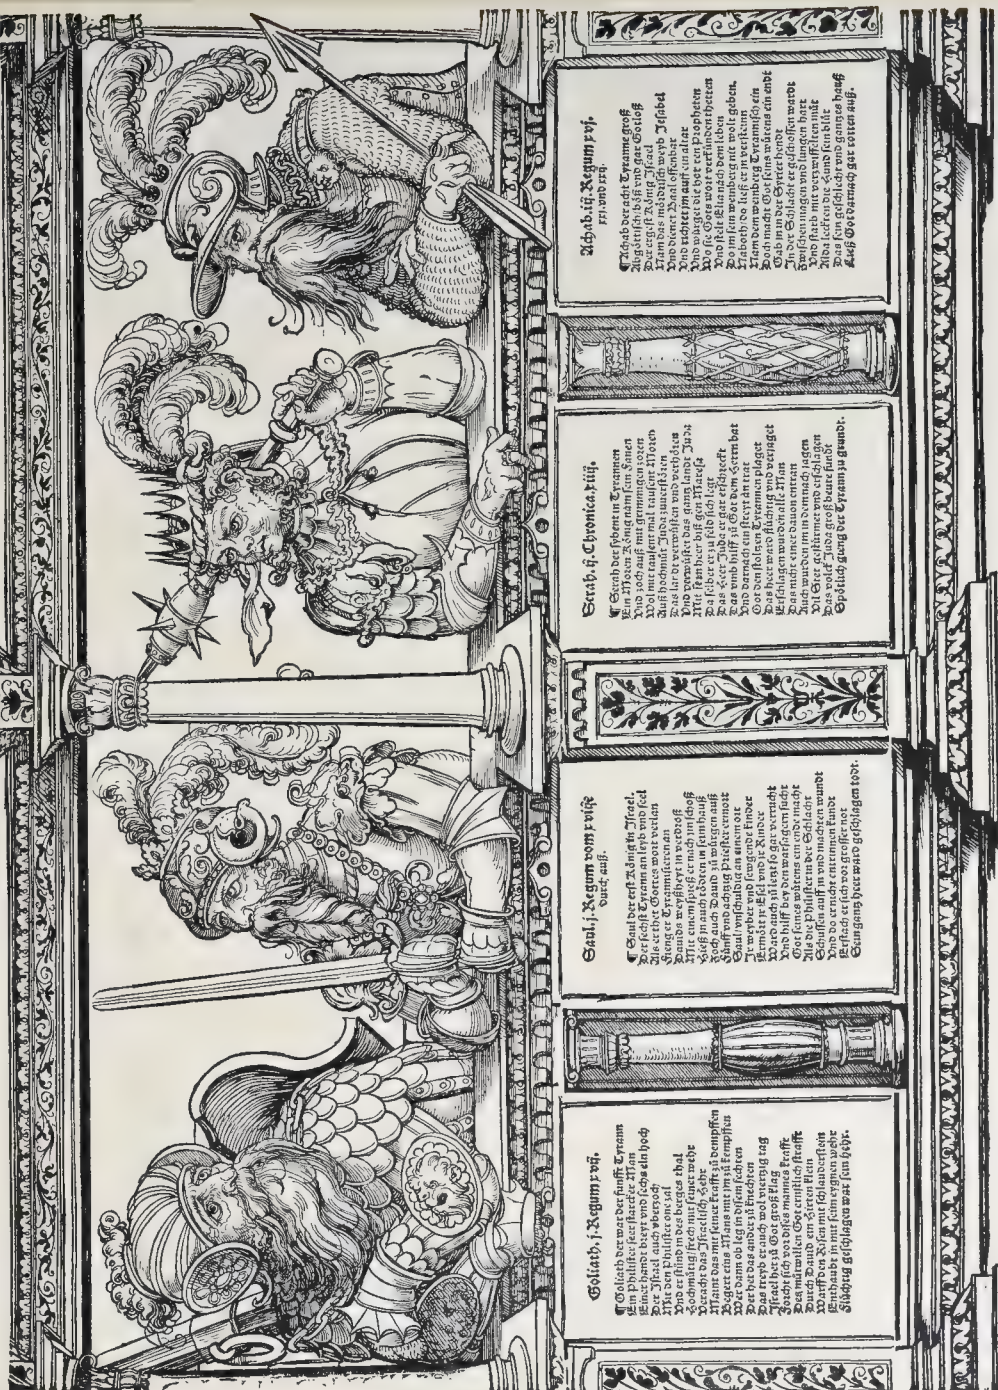 Goliath. j. Regum xvij.
¶ Goliath der war der funfft Tyrann
Ein Philister seer starcker Man
Einer handt breyt vnd sechs eln hoch
Der Israel auch vberzoch
Mit den Philister one zal
Vnd stünd in des berges thal
Hochmütig frech mit seiner wehr
Veracht das Israelitisch hehr
Maint das mit seiner krafft zů dempffen
Begert eins Mans mit jm zů kempffen
Wer dann ob leg in disem fechten
Der het das ander zů knechten
Das treyb er auch wol viertzig tag
Israel her zů Got groß klag
Forcht sich vor dises mannes kraffte
Des můtwillen Got ernstlich straffte
Durch Dauid ein Hirten klein
Warff den Risen mit schlauderstein
Enthaubt in mit seim eygnen wehr
Flüchtig geschlagen war sein hehr.
Saul. j. Regum vom xviije
durch auß.
¶ Saul der erst König in Israel.
Der sechst Tyrann an leyb vnd seel
Als er het Gottes wort verlan
Fieng er Tyrannisieren an
Dauids weyßheyt in verdroß
Mit einem spieß er nach jm schoß
Hieß jn auch tödten in seim hauß
Zoch auch Dauid zů würgen auß
Fünff vnd achtzig Priester ermort
Saul vnschuldig an einem ort
Jr weyber vnd sewgende kinder
Ermört jr Esel vnd jr Rinder
Ward auch zů letst so gar verrucht
Vnd hilff bey den warsagern sucht
Got seines wůtens ein ende macht
Als die Philister in der Schlacht
Schussen auff in vnd machten wundt
Vnd do er nicht entrinnen kundt
Erstach er sich vor grosser not
Sein gantz heer ward geschlagen todt.
Serah. ij. Chronica. xiiij.
¶ Serah der sybent in Tyrannen
Ein Moren König nam sein Fanen
Vnd zoch auß mit grimmigen zoren
Wol mit tausent mal tausent Moren
Auß hochmůt Juda zuuerstören
Das lar der verwüsten vnd verhören
Vnd verwüstet das gantz landt Juda
Mit seim heer biß gen Maresa
Da selber er zu feld sich legt
Das Heer Juda er gar erschreckt
Das vmb hilff zů Got dem Herrn bat
Vnd darnach ein streyt an trat
Got den stoltzen Tyrannen plaget
Das heer ward flüchtig vnd verjaget
Erschlagen wurden alle Man
Das nicht einer dauon entran
Auch wurden im in dem nach jagen
Vil Stet gestürmet vnd erschlagen
Das volck Juda groß beute fundt
Spötlich gieng der Tyrann zu grundt.
Achab. iij. Regum xvj.
xxj. vnd xxij.
¶ Achab der acht Tyranne groß
Abgöttisch böß vnd gar Gotloß
Der ergest König Israel
Nam das mördisch weyb Jesabel
Vnd dienet Baal offenbar
Vnd richtet jm auff ein altar
Vnd würget die Herren propheten
Wo sie Gotes wort verkünden thetten
Vnd stelt Elia nach dem leben
Do im sein weinberg nit wolt geben.
Naboth/ do ließ er in versteinn
Nam den weinberg Tyrannisch ein
Doch macht Got seins wůtens ein endt
Gab in in der Syrer hendt
In der Schlacht er geschossen wardt
Zwischen magen vnd lungen hart
Vnd starb mit verzweyfelten můt
Alda leckten die Hund sein blůt
Das sein geschlecht vnd gantzes hauß
Ließ Got darnach gar rotten auß.